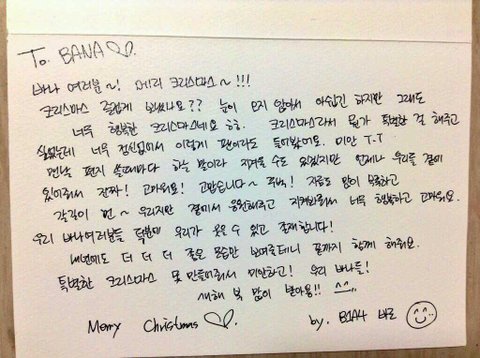 To. BANA♡.
바나 여러분~! 메리 크리스마스~!!!
크리스마스 즐겁게 보내셨나요?? 눈이 오지 않아서 아쉽긴 하지만 그래도
너무 행복한 크리스마스네요 ㅎㅎ. 크리스마스라서 뭔가 특별한 걸 해주고
싶었는데 너무 정신없어서 이렇게 편지라도 들어봤어요. 미안 T.T
맨날 편지 쓸때마다 하는 말이라 지겨울 수도 있겠지만 언제나 우리들 곁에
있어줘서 진짜! 고마워요! 고맙습니다~ 꾸벅! 지금도 많이 부족하고
각각이 먼~ 우리지만 곁에서 응원해주고 지켜봐줘서 너무 행복하고 고마워요.
우리 바나여러분들 덕분에 우리가 웃을 수 있고 존재합니다!
내년에도 더 더 더 좋은 모습만 보여줄테니 끝까지 함께 해줘요.
특별한 크리스마스 못 만들어줘서 미안하고! 우리 바나들!
새해 복 많이 받아용!! ^^..
Merry Christmas ♡. by. B1A4 바로